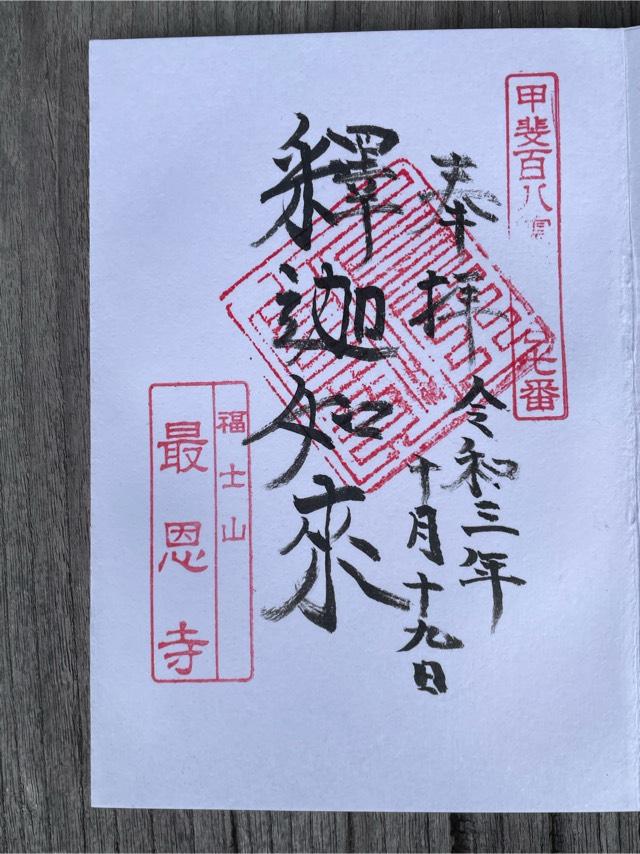 甲斐百八 七番
奉拝
令和三年
十月十九日
釋迦如來
福士山
最恩寺